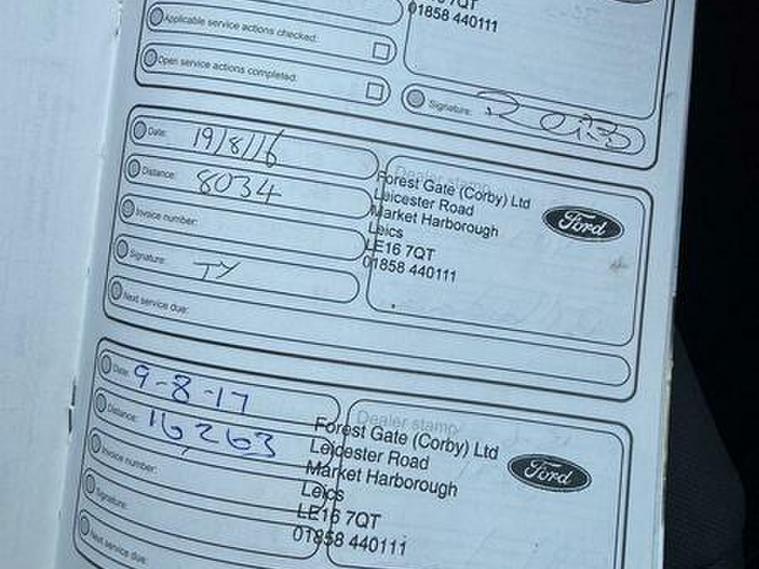 7QT
01858 440111
Applicable service actions checked:
Open service actions completed:
Signature:
Date: 19/8/16
Distance: 8034
Invoice number:
Signature: TY
Next service due:
Dealer stamp
Forest Gate (Corby) Ltd
Leicester Road
Market Harborough
Leics
LE16 7QT
01858 440111
Ford
Date: 9-8-17
Distance: 16263
Invoice number:
Signature:
Next service due:
Dealer stamp
Forest Gate (Corby) Ltd
Leicester Road
Market Harborough
Leics
LE16 7QT
01858 440111
Ford